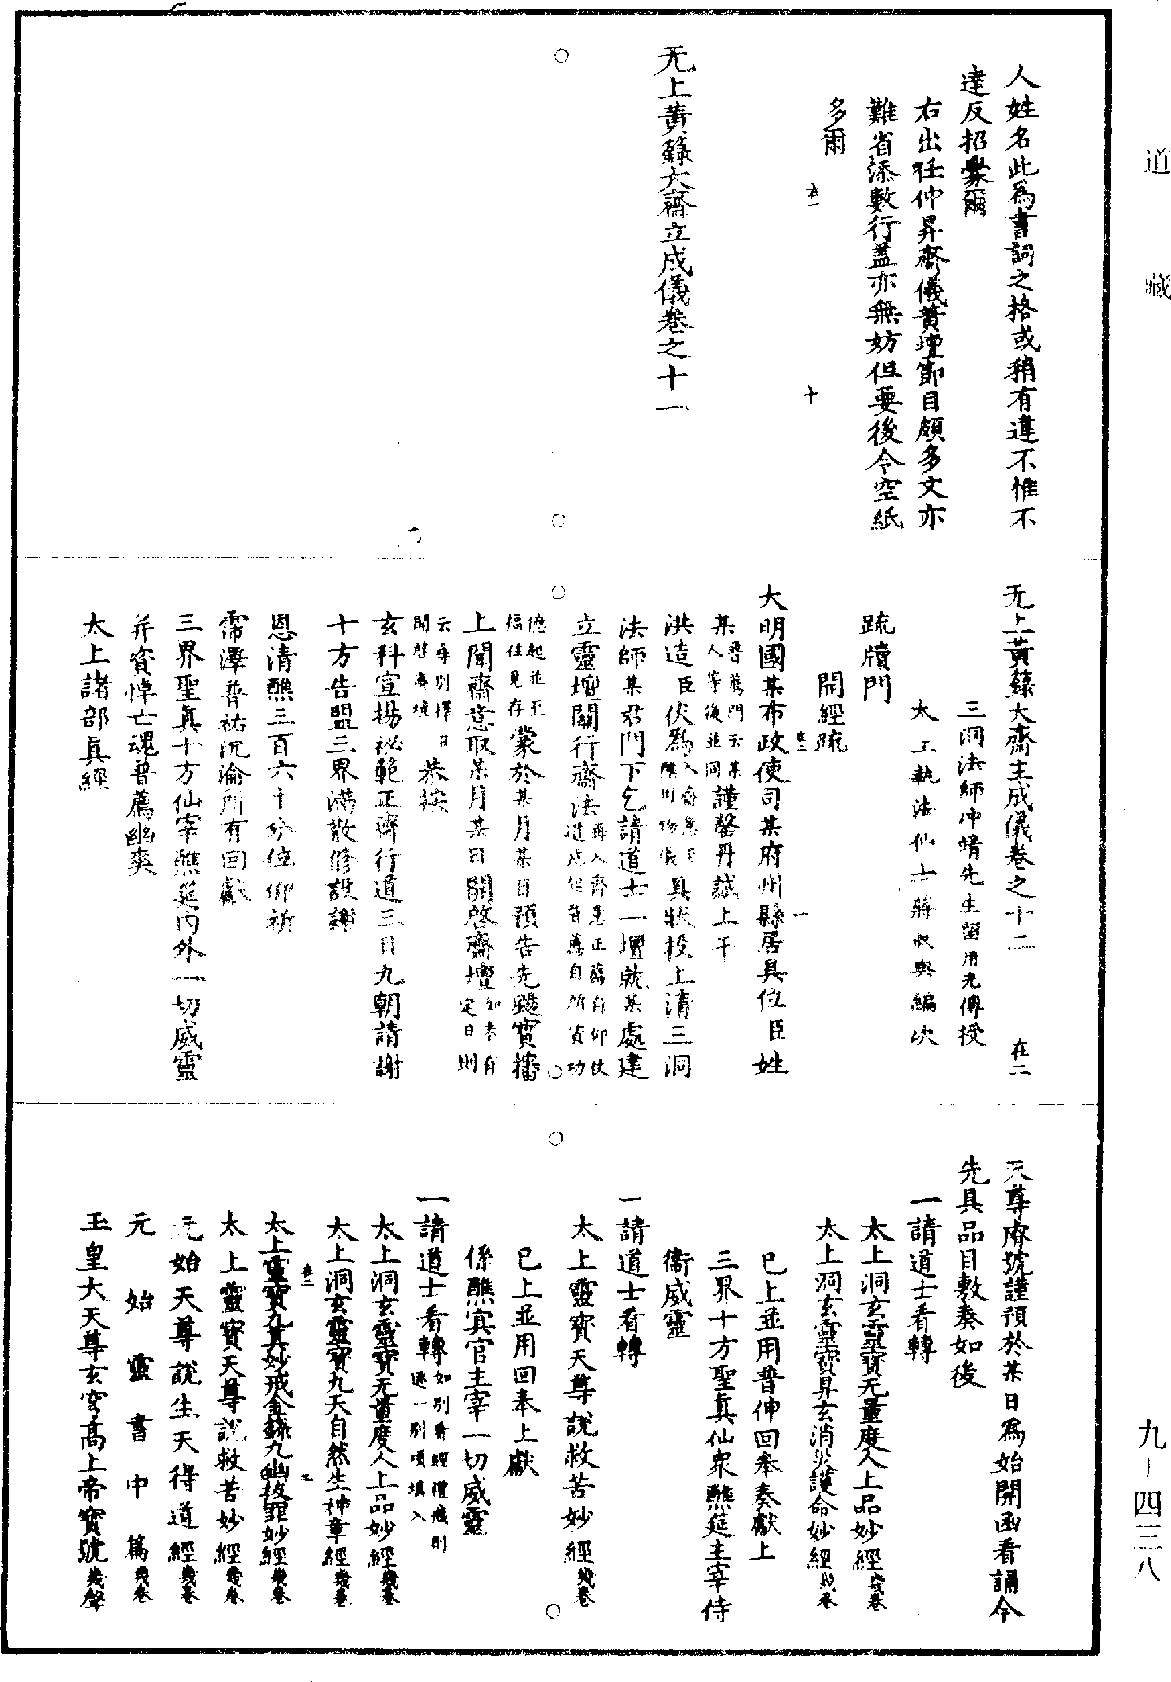 道藏
人姓名此為書詞之格或稍有違不惟不
達反招釁爾
右出任仲昇齋儀黃壇節目頗多文亦
難省添數行蓋亦無妨但要後令空紙
多爾
十
无上黃籙大齋立成儀卷之十一
无上黃籙大齋立成儀卷之十二
在二
三洞法師沖靖先生留用光傳授
太上執法仙士蔣叔輿編次
疏牘門
開經疏
大明國某布政使司某府州縣居具位臣姓
某普薦門云某人等後並同謹罄丹誠上干
洪造臣伏為入齋意具狀投上清三洞
法師某君門下乞請道士一壇就某處建
立靈壇關行齋法
蒙於某月某日預告先颺寶旛
上聞齋意取某月某日開啓齋壇如来自定日則
云尋別擇日開啓齋壇恭按
玄科宣揚祕範正齋行道三日九朝請謝
十方告盟三界滿散修設謝
恩清醮三百六十分位仰祈
霈澤普祐沉淪所有回獻
三界聖真十方仙宰醮筵內外一切威靈
并資悼亡魂普薦幽爽
太上諸部真經
天尊齋號謹預於某日為始開函看誦今
先具品目敷奏如後
一請道士看轉
太上洞玄靈寶无量度人上品妙經幾卷
太上洞玄靈寶昇玄消災護命妙經幾卷
已上並用普伸回奉奏獻上
三界十方聖真仙衆醮筵主宰侍
衛威靈
一請道士看轉
太上靈寶天尊說救苦妙經幾卷
已上並用回奉上獻
係醮冥官主宰一切威靈
一請道士看轉如別看經禮懺則逐一別項填入
太上洞玄靈寶无量度人上品妙經幾卷
太上洞玄靈寶九天自然生神章經幾卷
太上靈寶九真妙戒金籙九幽拔罪妙經幾卷
太上靈寶天尊說救苦妙經幾卷
元始天尊說生天得道經幾卷
元始靈書中篇幾卷
玉皇大天尊玄穹高上帝寶號幾聲
九-四三八